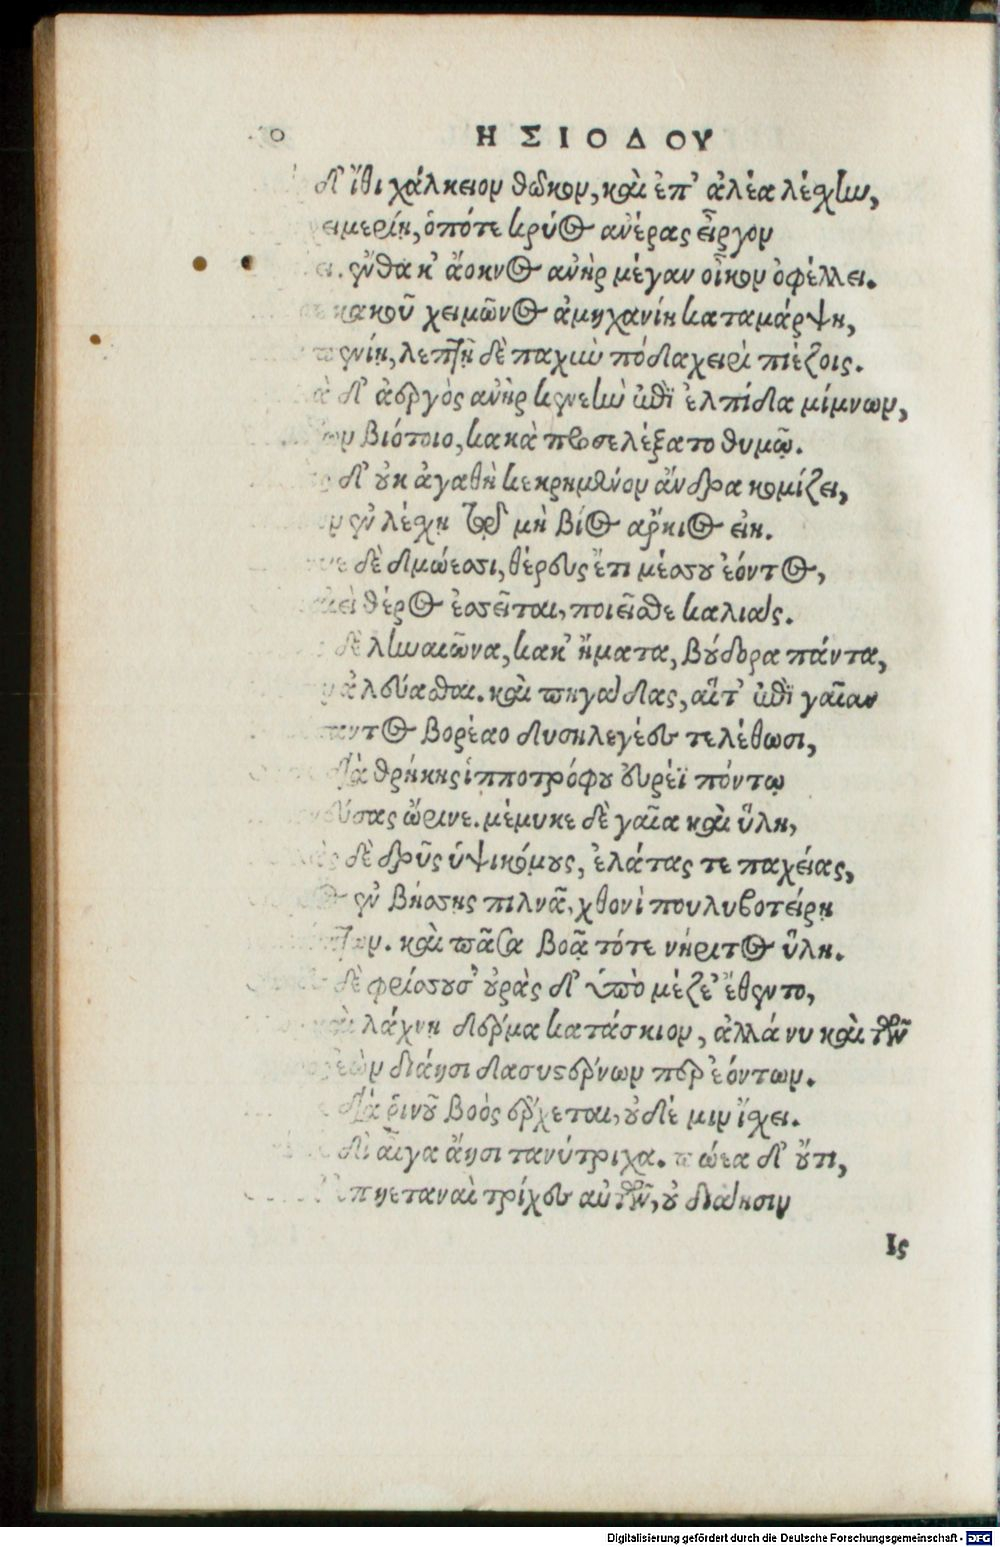 0 ΗΣΙΟΔΟΥ
δ' ἴθι χάλκειον θῶκον, καὶ ἐπ' ἀλέα λέσχην,
χειμερίῃ, ὁπότε κρύος ἀνέρας εἶργον
ἔνθα κ' ἄοκνος ἀνὴρ μέγαν οἶκον ὀφέλλει.
κακοῦ χειμῶνος ἀμηχανίη καταμάρψῃ,
πενίῃ, λεπτῇ δὲ παχὺν πόδα χειρὶ πιέζοις.
δ' ἀεργὸς ἀνὴρ κενεὴν ἐπὶ ἐλπίδα μίμνων,
βιότοιο, κακὰ προσελέξατο θυμῷ.
δ' οὐκ ἀγαθὴ κεκρημένον ἄνδρα κομίζει,
ἐν λέσχῃ τῷ μὴ βίος ἄρκιος εἴη.
δὲ δμώεσσι, θέρους ἔτι μέσου ἐόντος,
αἰεὶ θέρος ἐσσεῖται, ποιεῖσθε καλιάς.
δὲ ληναιῶνα, κάκ' ἤματα, βούδορα πάντα,
ἀλεύασθαι. καὶ πηγάδας, αἵτ' ἐπὶ γαῖαν
βορέαο δυσηλεγέες τελέθωσι,
διὰ θρήκης ἱπποτρόφου εὐρέϊ πόντῳ
ὤρινε. μέμυκε δὲ γαῖα καὶ ὕλη,
δὲ δρῦς ὑψικόμους, ἐλάτας τε παχείας,
ἐν βήσσῃς πιλνᾷ, χθονὶ πουλυβοτείρῃ
καὶ πᾶσα βοᾷ τότε νήριτος ὕλη.
δὲ φρίσσουσ' οὐρὰς δ' ὑπὸ μέζε' ἔθεντο,
καὶ λάχνῃ δέρμα κατάσκιον, ἀλλά νυ καὶ τῶν
διάησι δασυστέρνων περ ἐόντων.
διὰ ῥινοῦ βοὸς ἔρχεται, οὐδέ μιν ἴσχει.
δι' αἶγα ἄησι τανύτριχα. πώεα δ' οὔτι,
ἐπηεταναὶ τρίχες αὐτῶν, οὐ διάησιν
ἲς